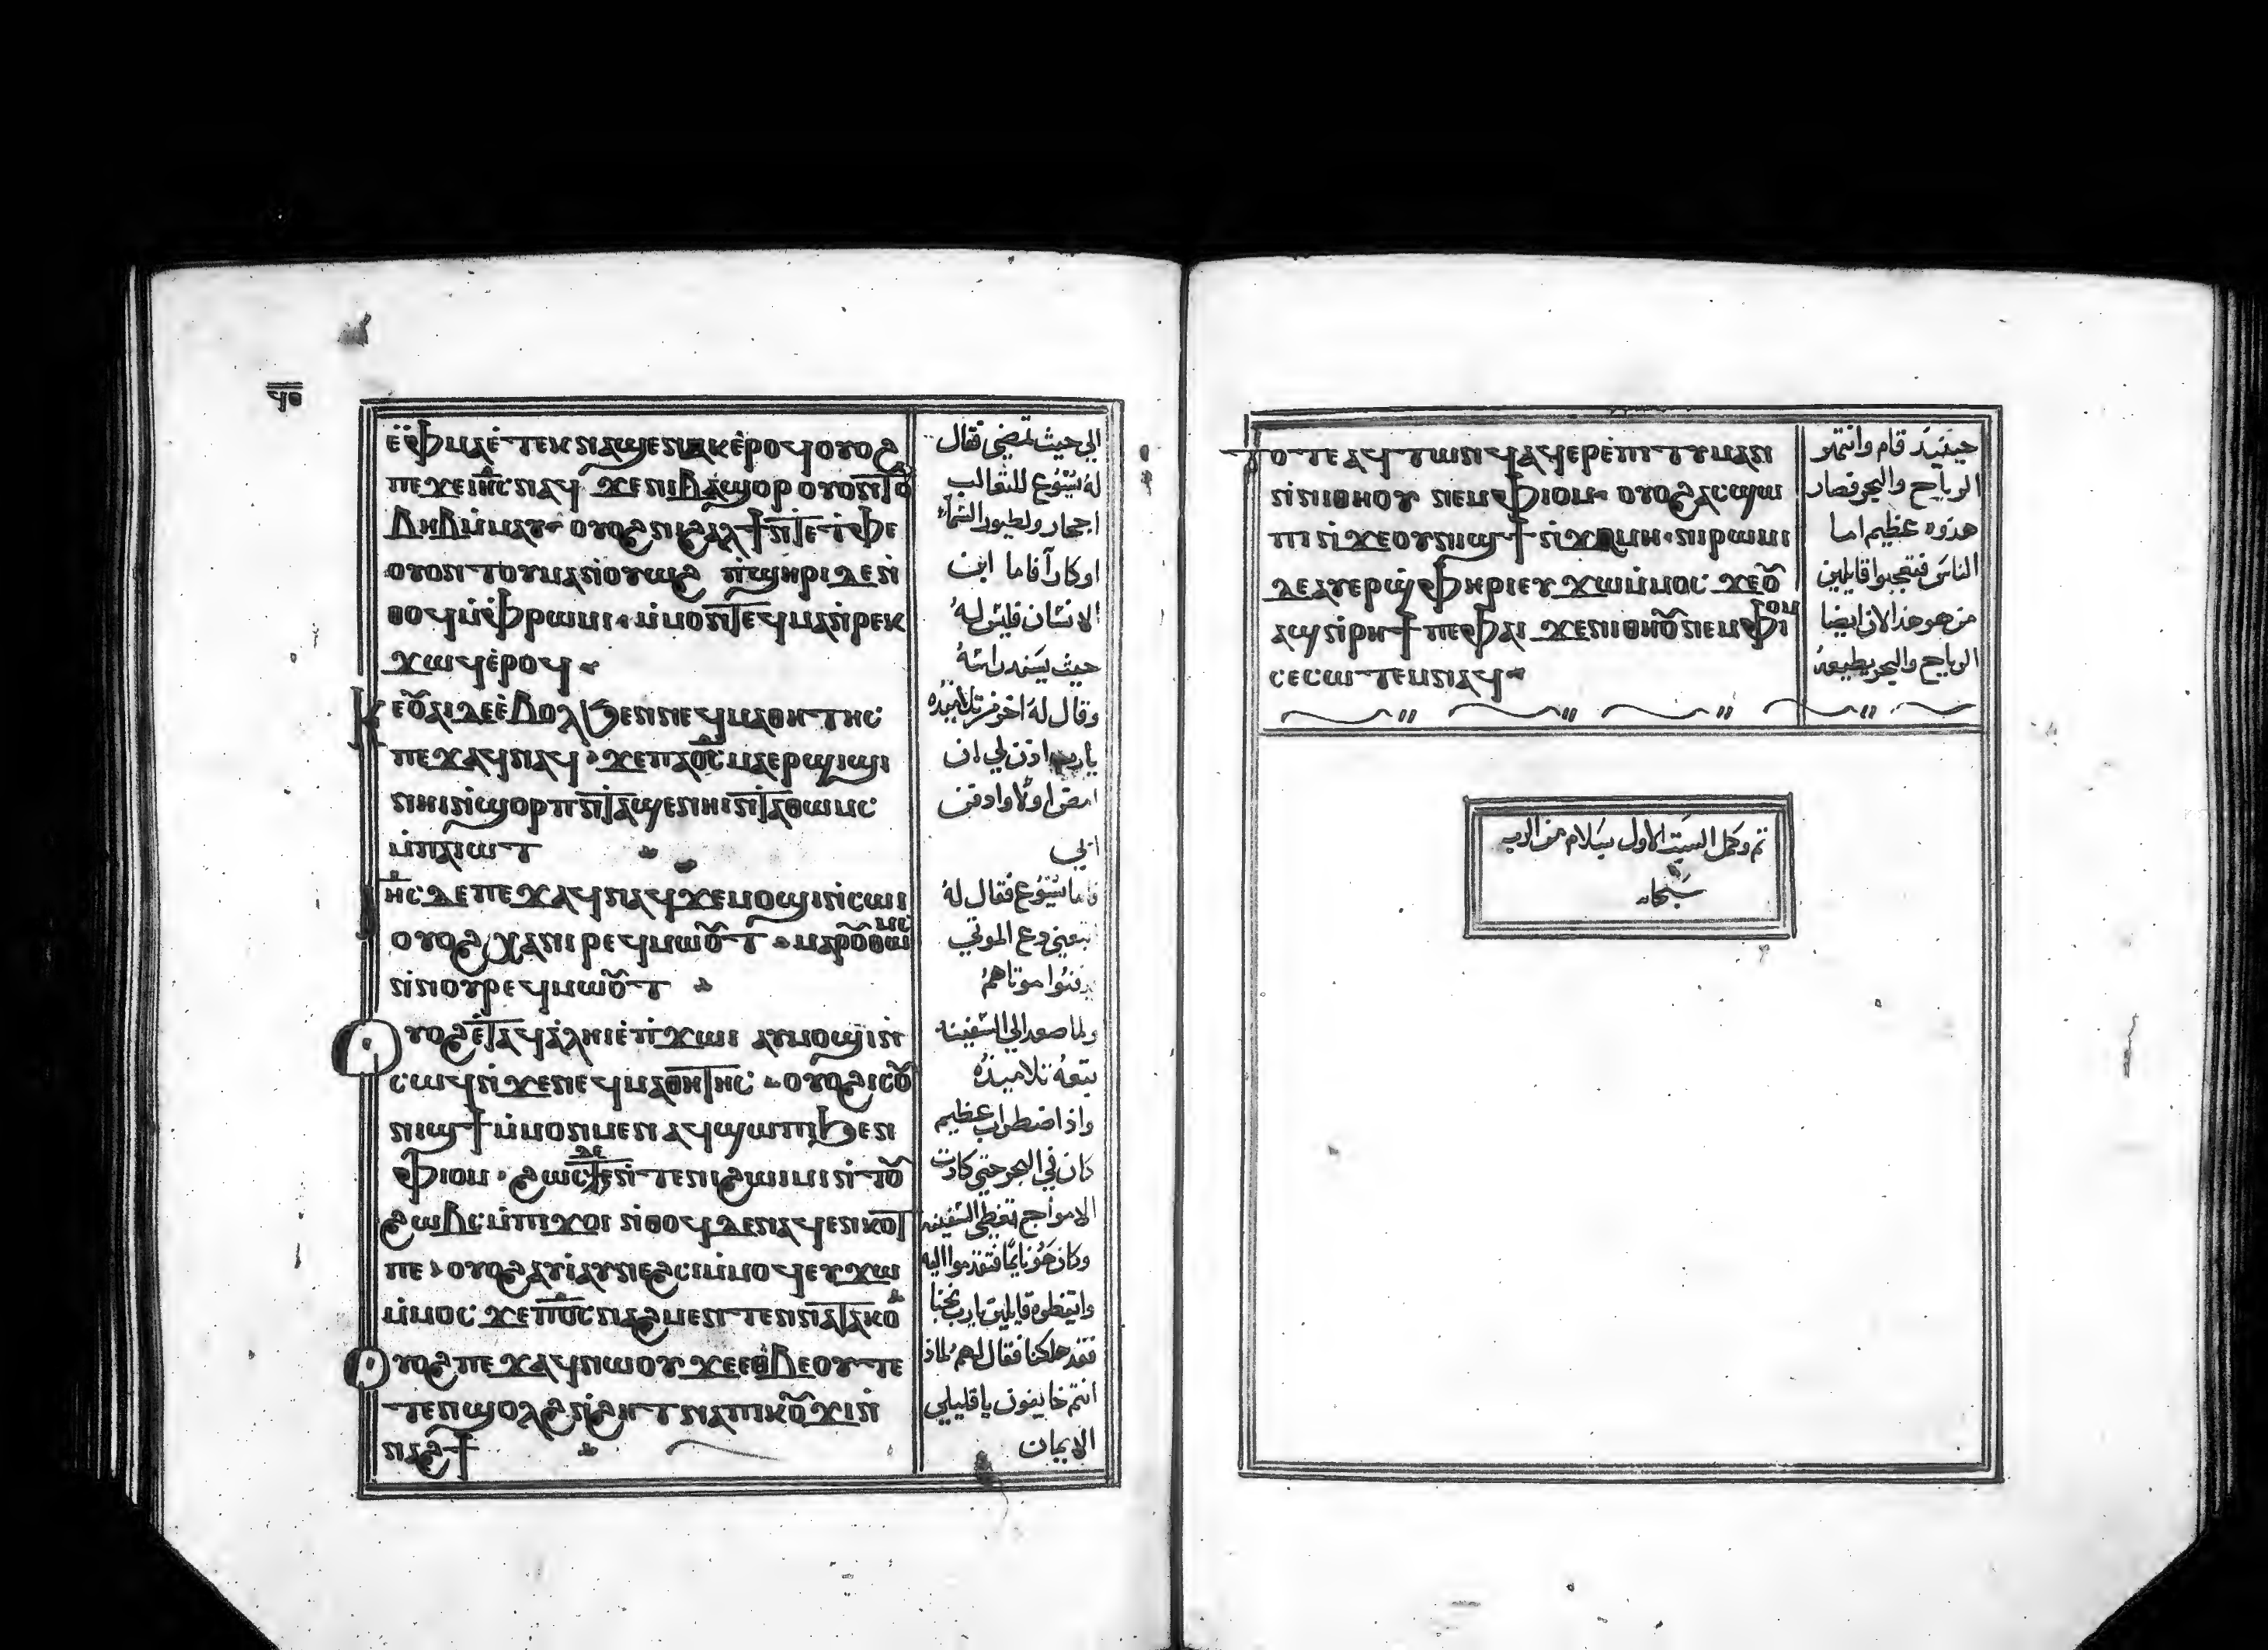 ϥⲑ
ⲉ̀ⲫⲙⲁⲉ̀ⲧⲉⲕⲛⲁϣⲉⲛⲁⲕⲉ̀ⲣⲟϥⲟⲩⲟϩ
ⲡⲉϫⲉⲓⲏⲥⲛⲁϥ ϫⲉⲛⲓⲃⲁϣⲟⲣ ⲟⲩⲟⲛⲧⲟ
ⲃⲏⲃⲙ̀ⲙⲁⲩ ⲟⲩⲟϩ ⲛⲓϩⲁⲗⲁϯ ⲛ̀ⲧⲉⲧ̀ⲫⲉ
ⲟⲩⲟⲛⲧⲟⲩⲙⲁⲛ̀ⲟⲩⲱϩ ⲡ̀ϣⲏⲣⲓⲇⲉⲛ̀
ⲑⲟϥⲙ̀ⲫ̀ⲣⲱⲙⲓ ⲙ̀ⲙⲟⲛⲧⲉϥⲙⲁⲛ̀ⲣⲉⲕ
ϫⲱϥⲉ̀ⲣⲟϥ
ⲕⲉⲟ̅ⲁⲓⲇⲉⲉ̀ⲃⲟⲗϧⲉⲛⲛⲉϥⲙⲁⲑⲏⲧⲏⲥ
ⲡⲉϫⲁϥⲛⲁϥ ϫⲉⲡⲁⲟ̅ⲥ̅ ⲙⲁⲉⲣϣⲓϣⲓ
ⲛⲏⲓⲛ̀ϣⲟⲣⲡ ⲛ̀ⲧⲁϣⲉⲛⲏⲓⲛ̀ⲧⲁⲑⲱⲙⲥ
ⲙ̀ⲡⲁⲓⲱⲧ
ⲓⲏⲥ ⲇⲉ ⲡⲉϫⲁϥⲛⲁϥϫⲉⲙⲟϣⲓⲛ̀ⲥⲱⲓ
ⲟⲩⲟϩ ⲭⲁⲛⲓⲣⲉϥⲙⲱⲟ̅ⲧ ⲙⲁⲣⲟ̅ⲑⲱⲙⲥ
ⲛ̀ⲛⲟⲩⲣⲉϥⲙⲱⲟ̅ⲧ
ⲟⲩⲟϩⲉ̀ⲧⲁϥⲁ̀ⲗⲏⲓⲉ̀ⲡ̀ϫⲱⲓ ⲁⲩⲙⲟϣⲓⲛ̀
ⲥⲱϥⲛ̀ϫⲉⲛⲉϥⲙⲁⲑⲏⲧⲏⲥ ⲟⲩⲟϩⲓⲥⲟ̅
ⲛⲓϣϯ ⲙ̀ⲙⲟⲛⲙⲉⲛ ⲁϥϣⲱⲡⲓϧⲉⲛ
ⲫⲓⲟⲙ ϩⲱⲥⲇⲉⲛ̀ⲧⲉⲛⲓϩⲱⲓⲙⲓ ⲛ̀ⲧⲟ̅
ϩⲱⲃⲥⲙ̀ⲡⲓϫⲟⲓ ⲛ̀ⲑⲟϥ ⲇⲉⲛⲁϥⲉⲛⲕⲟⲧ
ⲡⲉ ⲟⲩⲟϩⲁⲩⲓ̀ⲁⲩⲛⲉϩⲥⲓⲙ̀ⲙⲟϥⲉⲩϫⲱ
ⲙ̀ⲙⲟⲥ ϫⲉⲡⲟ̅ⲥ̅ ⲛⲁϩⲙⲉⲛ ⲧⲉⲛⲛⲁⲧⲁⲕⲟ
ⲟⲩⲟϩ ⲡⲉϫⲁϥⲛⲱⲟⲩ ϫⲉⲉⲑⲃⲉⲟⲩⲧⲉ
ⲧⲉⲛϣⲟⲗϩⲛ̀ϩⲏⲧ ⲛⲁⲡⲓⲕⲟ̅ϫⲓⲛ̀
ⲛⲁϩϯ
الي حيث تمضي فقال
له يسوع للثعالب
اجحار ولطيور السماء
اوكاراً فاما ابن
الانسان فليس له
حيث يسند راسه
وقال له اخر من تلاميذه
يارب اذن لي ان
امضي اولا وادفن
ابي
فاما يسوع فقال له
اتبعني دع الموتي
يدفنوا موتاهم
ولما صعد الي السفينه
تبعه تلاميذه
واذا اضطراب عظيم
كان في البحر حتي كادت
الامواج تغطي السفينه
وكان هو نايمًا فتقدموا اليه
وايقظوه قايلين يارب نجنا
فقد هلكنا فقال لهم لماذا
انتم خايفون يا قليلي
الايمان
ⲧⲟⲧⲉⲁϥⲧⲱⲛϥⲁϥⲉⲣⲉ̀ⲡⲓⲧⲩⲙⲁⲛ
ⲛ̀ⲛⲓⲑⲏⲟⲩ ⲛⲉⲙⲫⲓⲟⲙ ⲟⲩⲟϩⲁⲥϣⲱ
ⲡⲓⲛ̀ϫⲉⲟⲩⲛⲓϣϯ ⲛ̀ϫⲁⲙⲏ ⲛⲓⲣⲱⲙⲓ
ⲇⲉⲁⲩⲉⲣϣ̀ⲫⲏⲣⲓⲉⲩϫⲱⲙ̀ⲙⲟⲥ ϫⲉⲟ̅
ⲁϣⲛ̀ⲣⲏϯ ⲡⲉⲫⲁⲓ ϫⲉⲛⲓⲑⲏⲟ̅ⲛⲉⲙⲫⲓⲟⲙ
ⲥⲉⲥⲱⲧⲉⲙⲛⲁϥ
حينيذ قام وانتهر
الرياح والبحر فصار
هدوه عظيم اما
الناس فتعجبوا قايلين
من هو هذا لان ايضا
الرياح والبحر يطيعه
تم وكمل السبت الاول بسلام من الرب
سبحانه